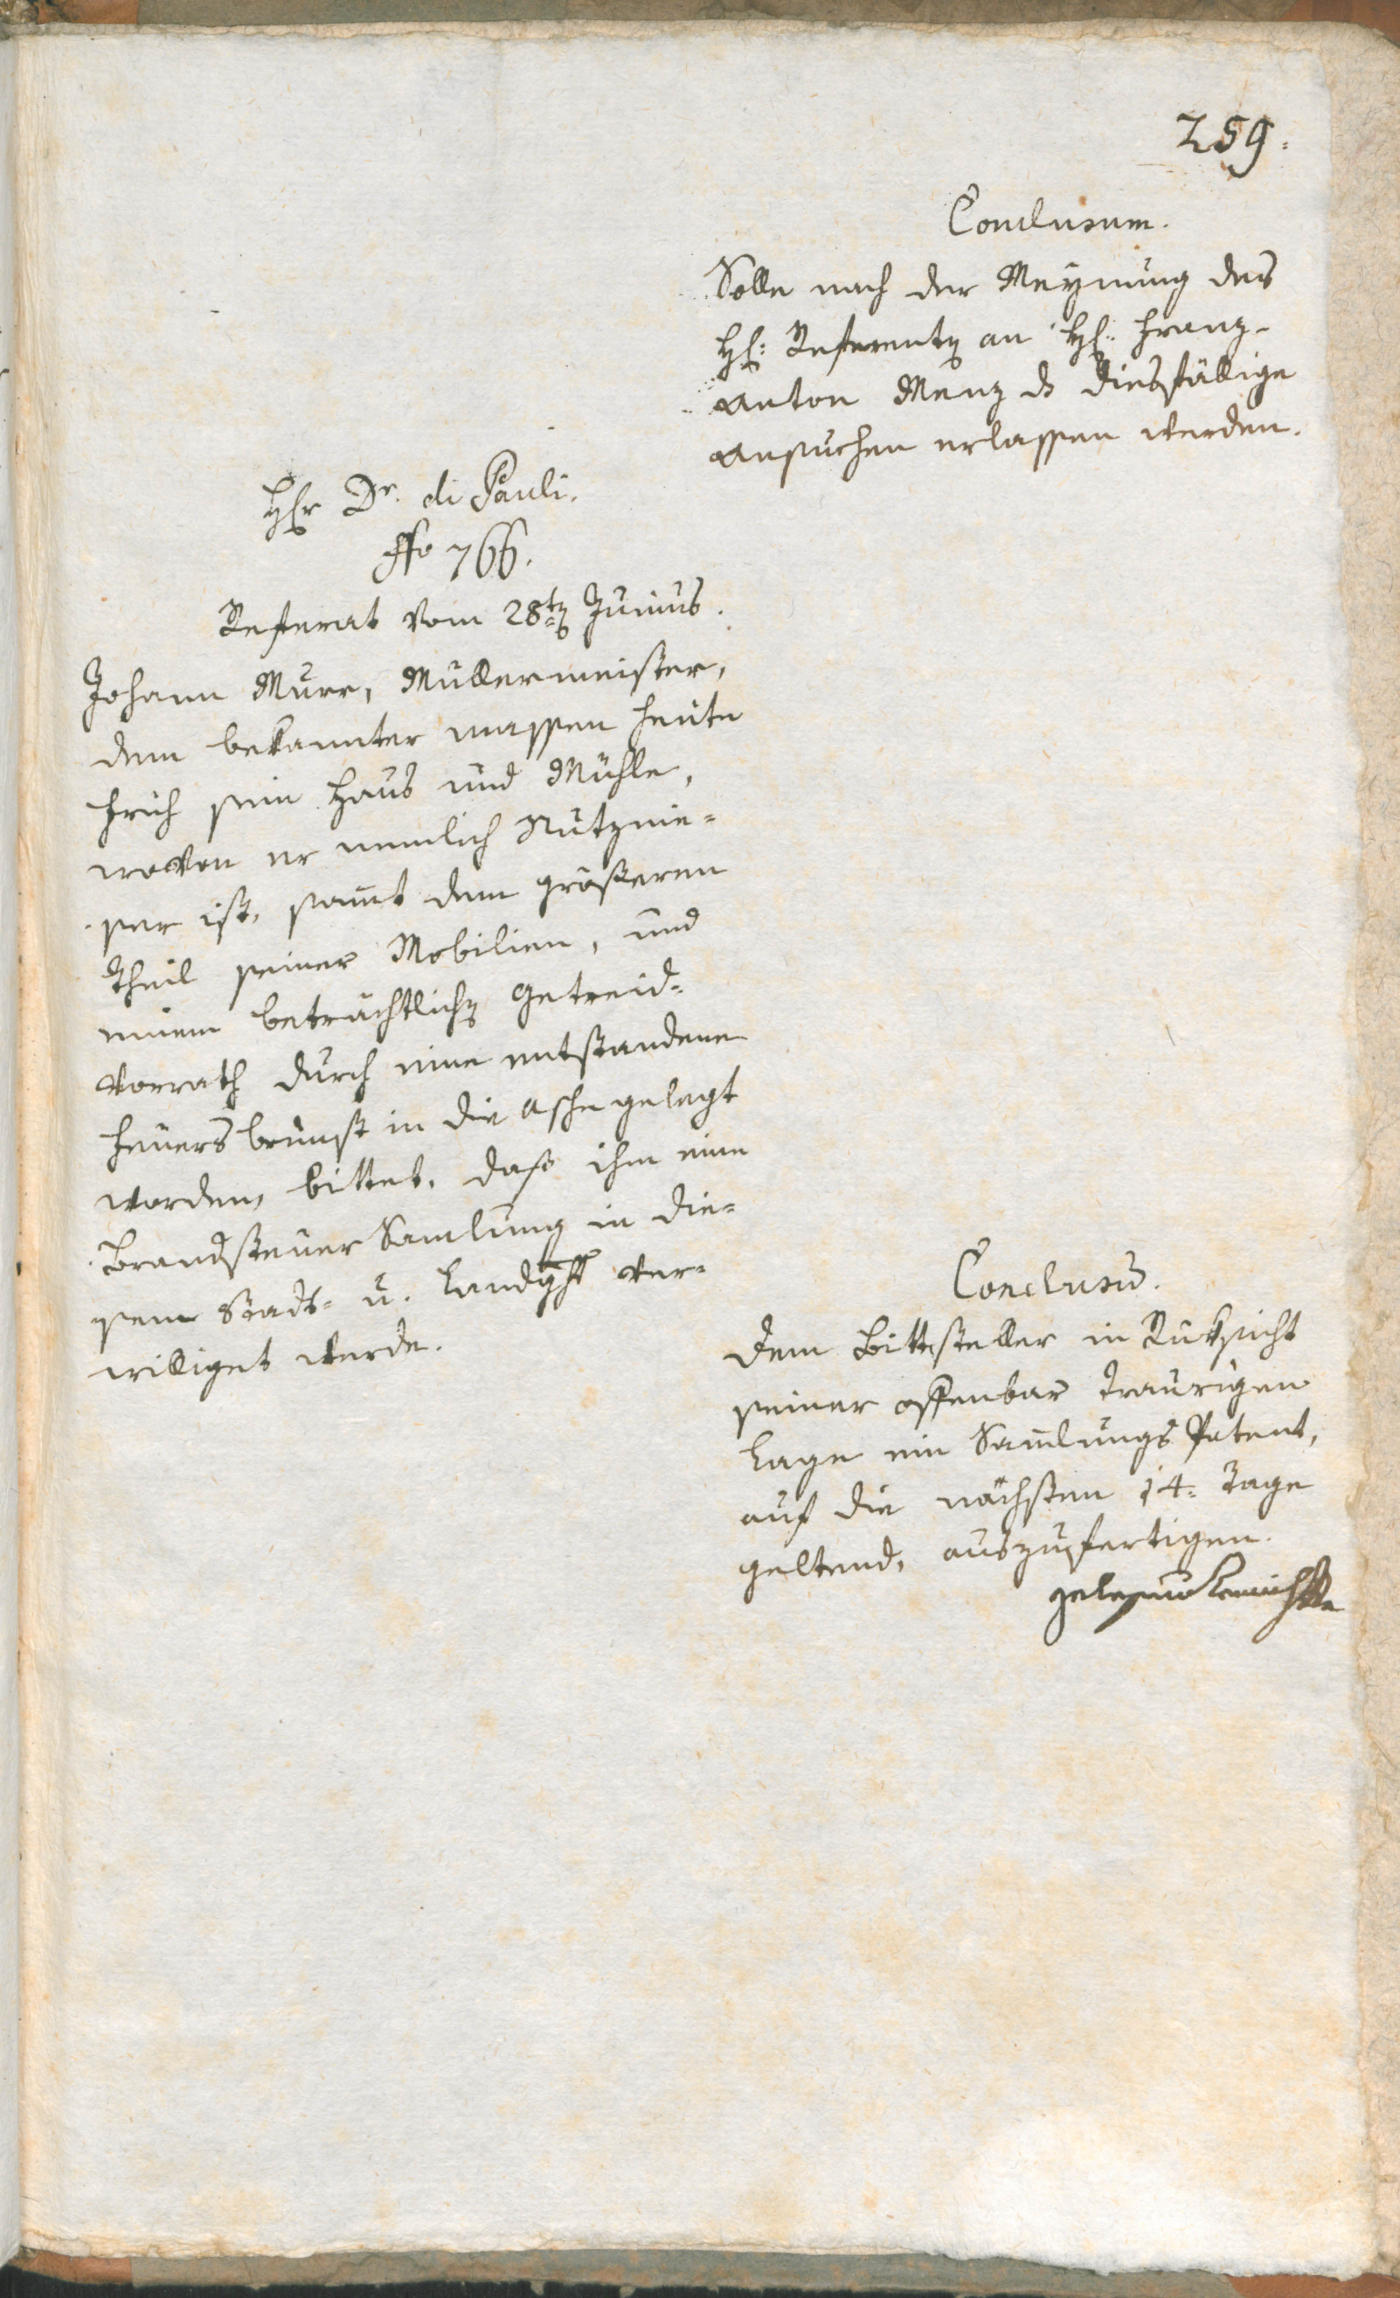 259.
Conclusum.
Solle nach der Meÿnung des
H: Referenten an H: Franz
Anton Menz ds diesfällige
Ansuchen erlassen werden.
Hr Dr. di Pauli.
No 766.
Referat vom 28ten Junius.
Johann Murr, Müllermeister,
dem bekannter massen heute
frich sein Haus und Mühle,
wovon er nemlich Nutznie=
ser ist, samt dem größeren
Theil seiner Mobilien, und
einem beträchtlichen Getreid=
vorrath durch eine entstandene
Feuersbrunst in die Asche gelegt
worden, bittet, daß ihm eine
Brandsteuer Samlung in die=
sem Stadt= u. Landght ver=
williget werde.
Conclusum.
Dem Bittsteller in Ruksicht
seiner offenbar traurigen
Lage ein Samlungs Patent,
auf die nächsten 14. Tage
geltend, auszufertigen.